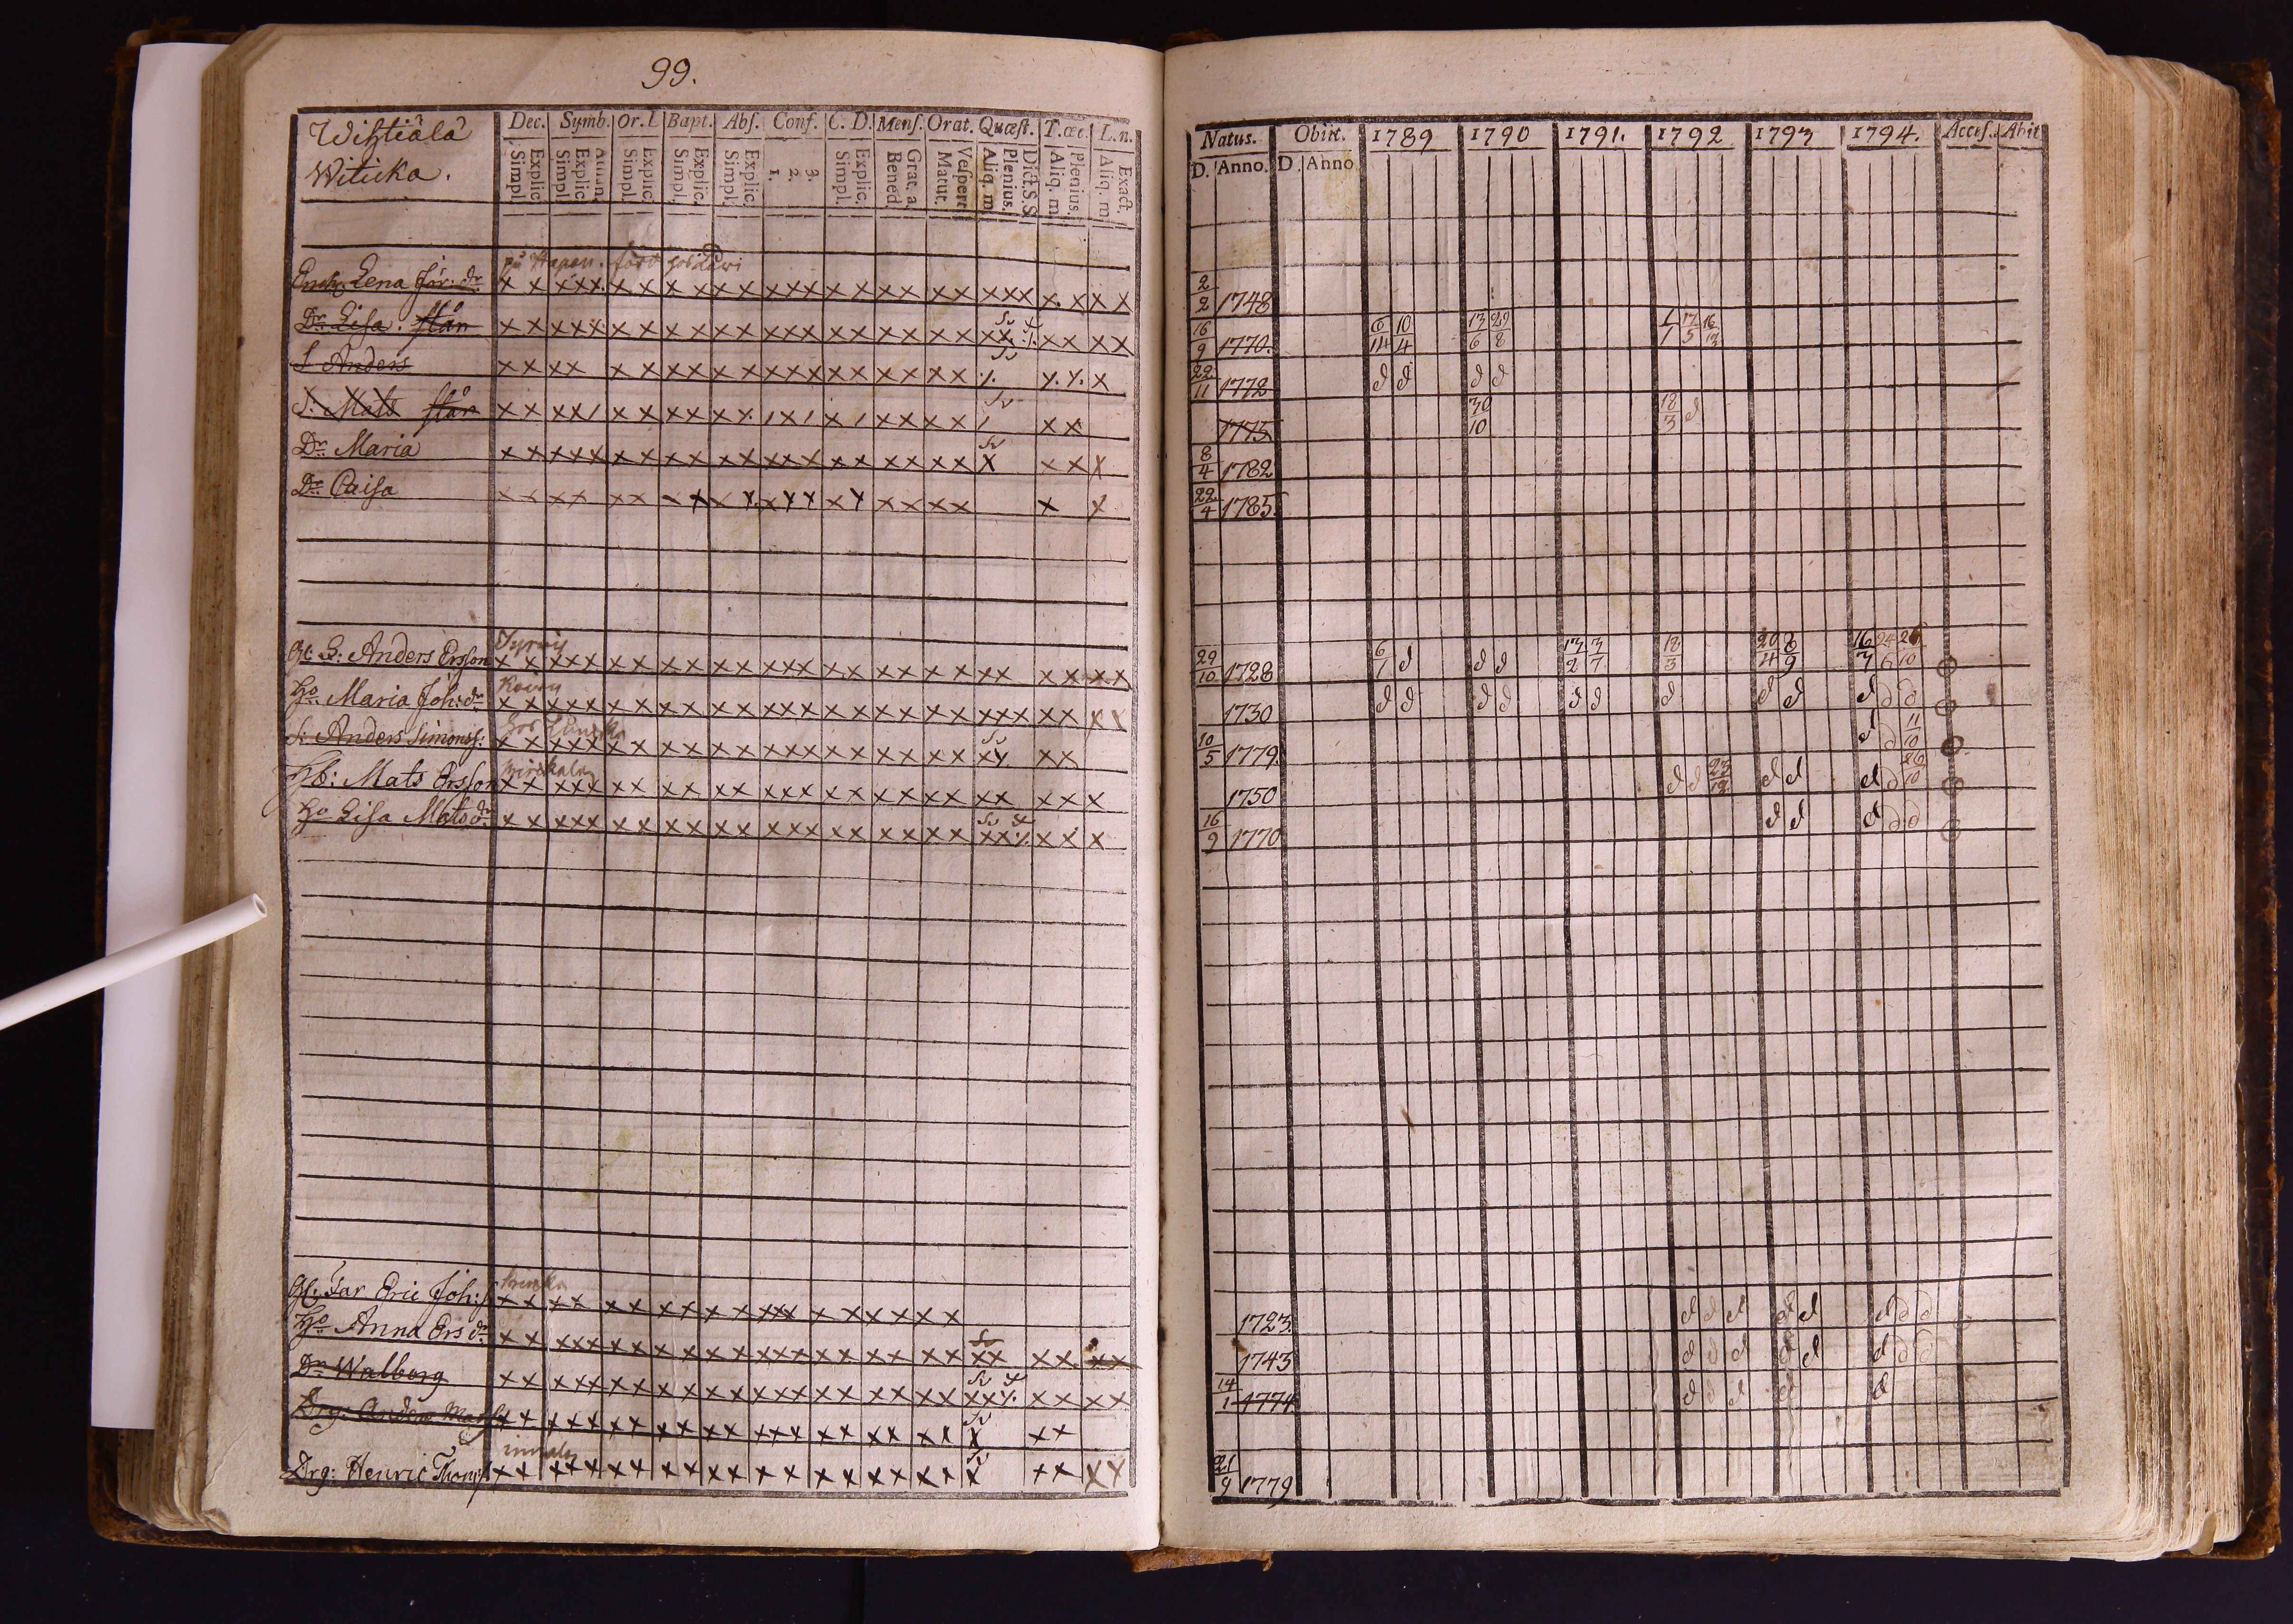 99.
Wihtiälä
Witicka.
Dec. Symb. Or. D. Bapt. Abs. Conf. C. D. Mens. Orat. Quæst. T. œc. L. n.
Simpl. Explic. Simpl. Explic. Simpl. Explic. Simpl. Explic. Simpl. Explic. 1. 2. 3. Simpl. Explic. Bened. Grat. a. Matut. Vespert. Aliq. m. Plenius. Dict. S. S. Aliq. m. Plenius. Aliq. m. Exact.
Natus. Obiit. 1789 1790 1791. 1792 1793 1794. Acces. Abit
D. Anno. D. Anno
Lena 2/2 1748
Dr. Lisa. 16/9 1770. 6/14 10/4 13/6 29/8 17/5 16/12
S Anders 22/11 1772 d d d d
S. Mats 1775 30/10 18/3 d
Dr. Maria 8/4 1782
Dr. Caisa 22/4 1785.
Anders Ersson 29/10 1728 6/1 d d d 13/2 3/7 18/3 20/4 8/9 16 24/6 26/10
Ho. Maria Joh: dr 1730 d d d d d d d d d d d d
S: Anders Simonss: 10/5 1779. d d 11/10
Hb: Mats Ersson 1750 d d 23/12 d d d d 26/10
Ho Lisa Matsdr 16/9 1770 d d d d d
Far Eric Joh: 1723. d d d d d d d d
Ho Anna Ers dr. 1743 d d d d d d d d
Dr Walborg 14/1 1774 d d d d d
Drg: Anders
Drg: Henric 21/9 1779